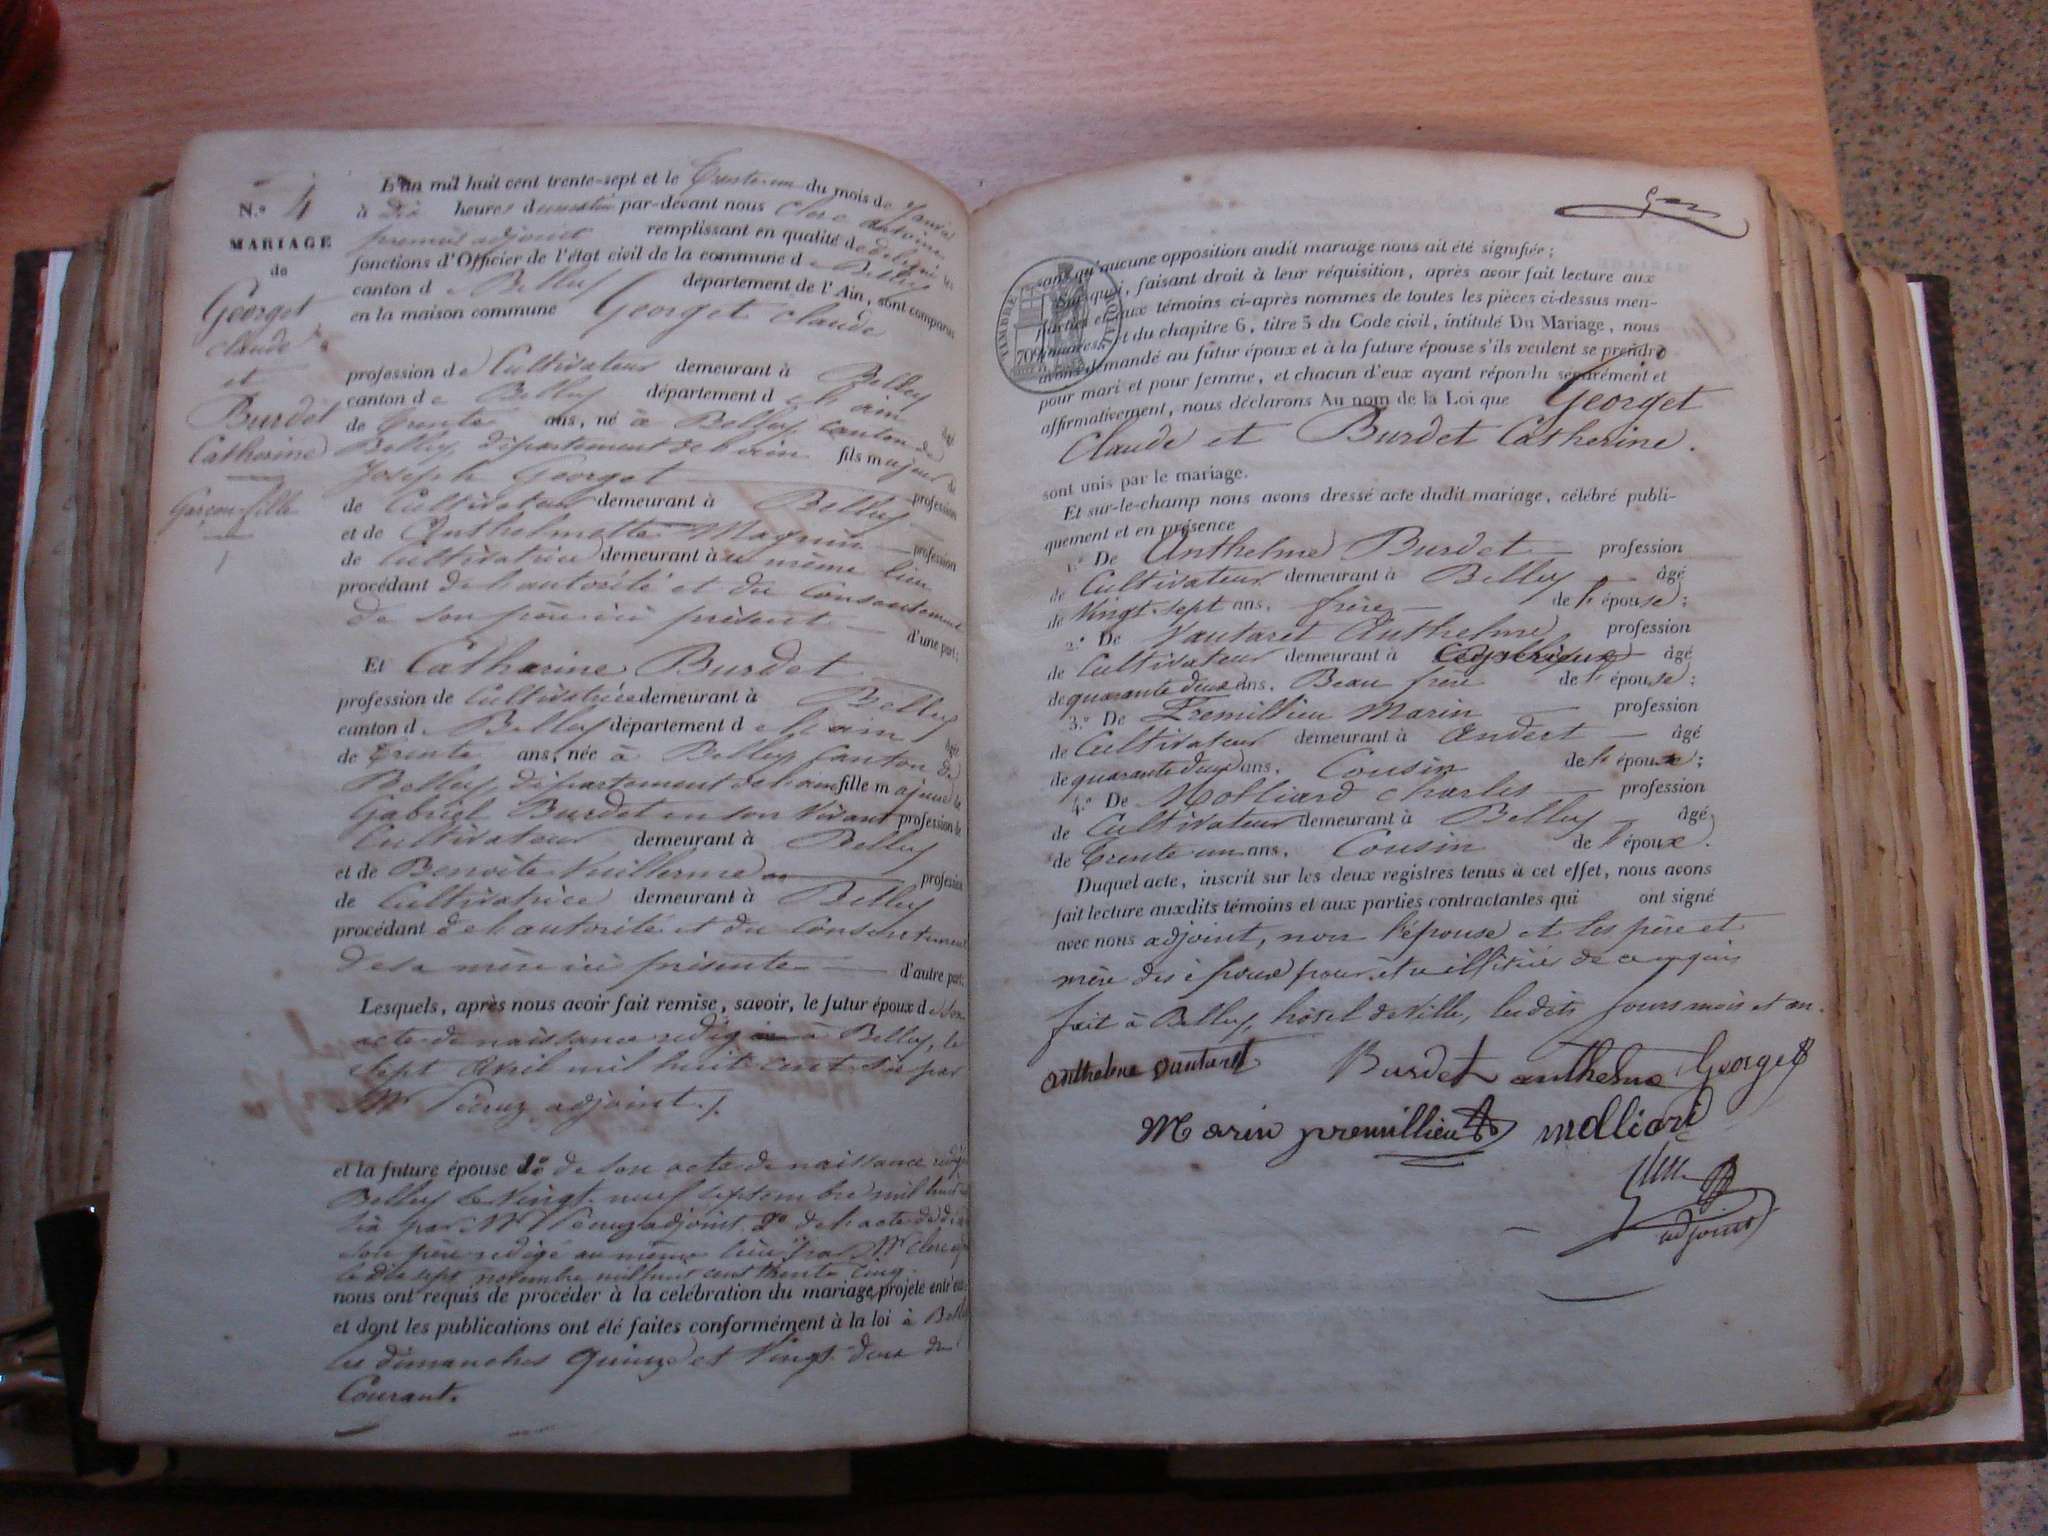 N.º 4
MARIAGE
de
Georget
Claude
et
Burdet
Catherine
Garçon fille
L'an mil huit cent trente-sept et le trente un du mois de Janvier
à dix heures du matin par-devant nous Clerc Antoine
premier adjoint remplissant en qualité de délégué les
fonctions d'Officier de l'état civil de la commune de Belley
canton d Belley département de l'Ain, sont comparus
en la maison commune Georget Claude
profession de Cultivateur demeurant à Belley
canton de Belley département de l'ain âgé
de trente ans, né à Belley canton de
Belley, département de l'ain fils majeur de
Joseph Georget profession
de Cultivateur demeurant à Belley
et de Anthelmette Magnin profession
de Cultivatrice demeurant au même lieu
procédant de l'autorité et du Consentement
de son père ici présent d'une part;
Et Catherine Burdet
profession de Cultivatrice demeurant à Belley
canton d Belley département de l'ain âgé
de trente ans, née à Belley Canton de
Belley, département de l'ain fille majeure de
Gabriel Burdet en son vivant profession de
Cultivateur demeurant à Belley
et de Benoite Vuillerme profession
de Cultivatrice demeurant à Belley
procédant de l'autorité et du Consentement
de sa mère ici présente d'autre part;
Lesquels, après nous avoir fait remise, savoir, le futur époux de son
acte de naissance à Belley, le
sept avril mil huit cent six par
Mr adjoint./.
et la future épouse 1º de son acte de naissance
Belley le vingt neuf septembre mil huit
six par Mr adjoint. 2º de l'acte de
son père rédigé au même lieu par Mr Clerc
le dix sept novembre mil huit cent trente cinq.
nous ont requis de procéder à la célébration du mariage projeté entr'eux
et dont les publications ont été faites conformément à la loi à Belley
les dimanches quinze et vingt deux du
Courant.
sans qu'aucune opposition audit mariage nous ait été signifiée;
Sur quoi, faisant droit à leur réquisition, après avoir fait lecture aux
parties et aux témoins ci-après nommés de toutes les pièces ci-dessus men-
tionnées, et du chapitre 6, titre 5 du Code civil, intitulé Du Mariage, nous
avons demandé au futur époux et à la future épouse s'ils veulent se prendre
pour mari et pour femme, et chacun d'eux ayant répondu séparément et
affirmativement, nous déclarons Au nom de la Loi que Georget
Claude et Burdet Catherine.
sont unis par le mariage.
Et sur-le-champ nous avons dressé acte dudit mariage, célébré publi-
quement et en présence
1.º De Anthelme Burdet profession
de Cultivateur demeurant à Belley âgé
de vingt-sept ans, frère de l'épouse;
2.º De Vautaret Anthelme profession
de Cultivateur demeurant à Ceyzérieux âgé
de quarante deux ans, Beau frère de l'épouse;
3.º De Premillieu Marin profession
de Cultivateur demeurant à Andert âgé
de quarante deux ans, Cousin de l'époux;
4.º De Molliard Charles profession
de Cultivateur demeurant à Belley âgé
de trente un ans, Cousin de l'époux.
Duquel acte, inscrit sur les deux registres tenus à cet effet, nous avons
fait lecture auxdits témoins et aux parties contractantes qui ont signé
avec nous adjoint, non l'épouse et les père et
mère des époux pour être illitérés de ce enquis
fait à Belley, hôtel de ville, lesdits jours mois et an.
Anthelme Vautaret Burdet anthelme Georget
Marin premillieu molliard
adjoint
TIMBRE
70